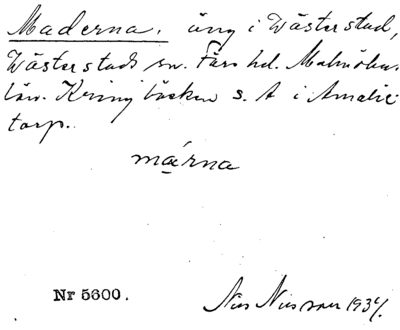 Maderna, äng i Västerstad,
Västerstads sn. Färs hd. Malmöhus
län. Kring bäcken s. A i Amalie
torp.
márna
Nr 5600.
Nils Nilsson 1934.